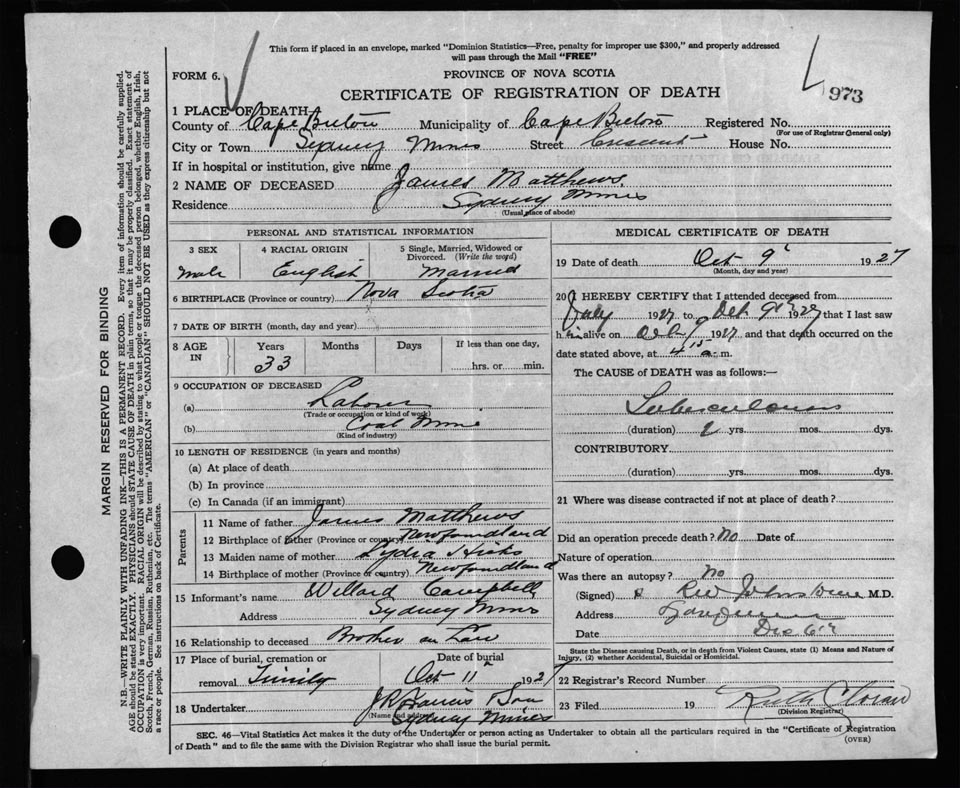 This form if placed in an envelope, marked "Dominion Statistics—Free, penalty for improper use $300," and properly addressed
will pass through the Mail "FREE"
FORM 6.
PROVINCE OF NOVA SCOTIA
CERTIFICATE OF REGISTRATION OF DEATH
973
1 PLACE OF DEATH
County of Cape Breton Municipality of Cape Breton Registered No.
(For use of Registrar General only)
City or Town Sydney Mines Street Crescent House No.
If in hospital or institution, give name
2 NAME OF DECEASED James Matthews
Residence Sydney Mines
(Usual place of abode)
PERSONAL AND STATISTICAL INFORMATION
3 SEX 4 RACIAL ORIGIN 5 Single, Married, Widowed or
Divorced. (Write the word)
Male English Married
6 BIRTHPLACE (Province or country) Nova Scotia
7 DATE OF BIRTH (month, day and year)
8 AGE IN Years Months Days If less than one day,
33 hrs. or min.
9 OCCUPATION OF DECEASED
(a) Laborer
(Trade or occupation or kind of work)
(b) Coal Mine
(Kind of industry)
10 LENGTH OF RESIDENCE (in years and months)
(a) At place of death
(b) In province
(c) In Canada (if an immigrant)
Parents
11 Name of father James Matthews
12 Birthplace of father (Province or country) Newfoundland
13 Maiden name of mother Lydia Hicks
14 Birthplace of mother (Province or country) Newfoundland
15 Informant's name Willard Campbell
Address Sydney Mines
16 Relationship to deceased Brother in Law
17 Place of burial, cremation or Date of burial
removal Trinity Oct 11 1927
18 Undertaker J R Francis Son
(Name and address)
Sydney Mines
MEDICAL CERTIFICATE OF DEATH
19 Date of death Oct 9 1927
(Month, day and year)
20 I HEREBY CERTIFY that I attended deceased from
July 1927 to Oct 9 1927 that I last saw
him alive on Oct 9 1927 and that death occurred on
date stated above, at 4 15 a m.
The CAUSE of DEATH was as follows:—
Tuberculosis
(duration) 2 yrs. mos. dys.
CONTRIBUTORY.
(duration) yrs. mos. dys.
21 Where was disease contracted if not at place of death?
Did an operation precede death? No Date of
Nature of operation
Was there an autopsy? No
(Signed) Johnstone M.D.
Address
Date
State the Disease causing Death, or in death from Violent Causes, state (1) Means and Nature of
Injury, (2) whether Accidental, Suicidal or Homicidal.
22 Registrar's Record Number
23 Filed 19 Ruth
(Division Registrar)
SEC. 46—Vital Statistics Act makes it the duty of the Undertaker or person acting as Undertaker to obtain all the particulars required in the "Certificate of Registration
of Death" and to file the same with the Division Registrar who shall issue the burial permit.
(OVER)
MARGIN RESERVED FOR BINDING
N.B.—WRITE PLAINLY WITH UNFADING INK—THIS IS A PERMANENT RECORD. Every item of information should be carefully supplied.
AGE should be stated EXACTLY. PHYSICIANS should STATE CAUSE OF DEATH in plain terms, so that it may be properly classified. Exact statement of
OCCUPATION is very important. RACIAL ORIGIN will be described by stating to what people or tongue the deceased person belonged, whether English, Irish,
Scotch, French, German, Russian, Ruthenian, etc. The terms "AMERICAN" or "CANADIAN" SHOULD NOT BE USED as they express citizenship but not
a race or people. See instructions on back of Certificate.